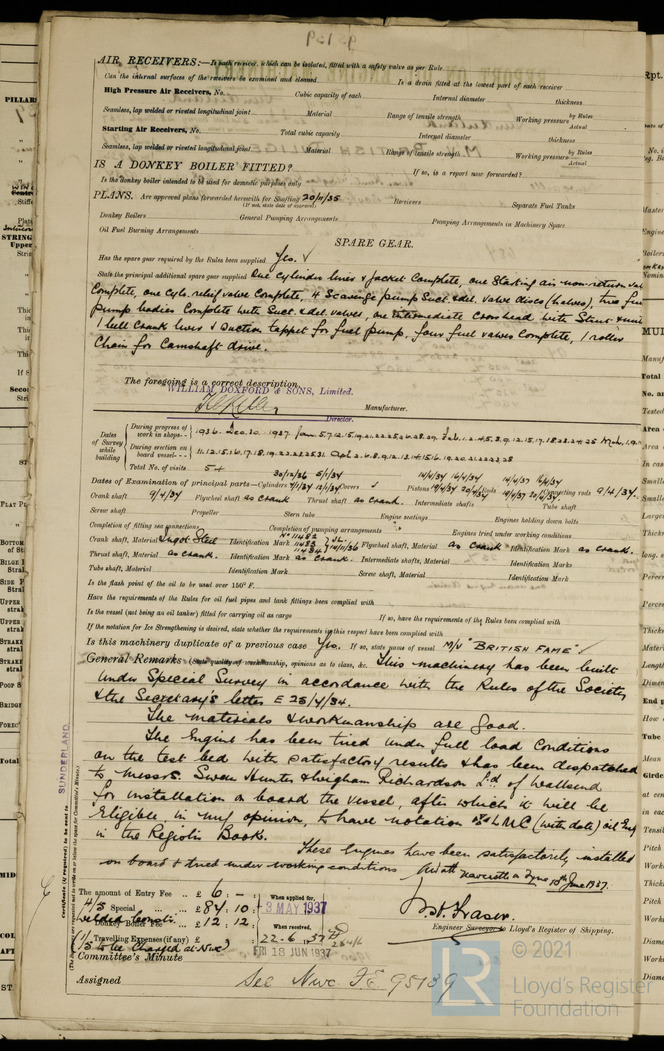 95139
AIR RECEIVERS:— Is each receiver, which can be isolated, fitted with a safety valve as per Rule
Can the internal surfaces of the receivers be examined and cleaned Is a drain fitted at the lowest part of each receiver
High Pressure Air Receivers, No. Cubic capacity of each Internal diameter thickness
Seamless, lap welded or riveted longitudinal joint Material Range of tensile strength Working pressure by Rules Actual
Starting Air Receivers, No. Total cubic capacity Internal diameter thickness
Seamless, lap welded or riveted longitudinal joint Material Range of tensile strength Working pressure by Rules Actual
IS A DONKEY BOILER FITTED? If so, is a report now forwarded?
Is the donkey boiler intended to be used for domestic purposes only
PLANS. Are approved plans forwarded herewith for Shafting 20/11/35 Receivers Separate Fuel Tanks
(If not, state date of approval)
Donkey Boilers General Pumping Arrangements Pumping Arrangements in Machinery Space
Oil Fuel Burning Arrangements
SPARE GEAR.
Has the spare gear required by the Rules been supplied Yes. ✓
State the principal additional spare gear supplied One cylinder liner & Jacket Complete, one Starting air non-return val
Complete, one cyl. relief valve Complete, 4 Scavenge pump Suct. & del. valve discs (halves), two fuel
pump bodies Complete with Suct. & del. valves, one intermediate crosshead with Strut &
1 bell Crank lever & Suction tappet for fuel pump, four fuel valves Complete, 1 roller
Chain for Camshaft drive.
The foregoing is a correct description,
WILLIAM DOXFORD & SONS, Limited.
Manufacturer.
Director.
Dates of Survey while building
During progress of work in shops - - 1936. Dec. 30. 1937. Jan. 5.7.12.15.19.21.22.25.26.28.29. Feb. 1.2.4.5.8.9.12.15.17.18.23.24.25 Mch. 1.9.
During erection on board vessel - - - 11.12.15.16.17.18.19.22.23.25.31 Apl. 2.6.8.9.12.13.14.15.16.19.20.21.22.23.28
Total No. of visits 54
30/12/36 5/1/37 14/4/37 16/4/37 14/4/37 16/4/37
Dates of Examination of principal parts—Cylinders Covers ✓ Pistons 19/4/37 20/4/37 Rods 19/4/37 Connecting rods 9/4/37.
Crank shaft 9/4/37 Flywheel shaft as crank Thrust shaft as crank. Intermediate shafts Tube shaft
Screw shaft Propeller Stern tube Engine seatings Engines holding down bolts
Completion of fitting sea connections Completion of pumping arrangements Engines tried under working conditions
Crank shaft, Material Ingot Steel Identification Mark No 11482 11483 11484 14/11/36 Flywheel shaft, Material as Crank Identification Mark as crank.
Thrust shaft, Material as crank. Identification Mark as Crank. Intermediate shafts, Material Identification Marks
Tube shaft, Material Identification Mark Screw shaft, Material Identification Mark
Is the flash point of the oil to be used over 150° F.
Have the requirements of the Rules for oil fuel pipes and tank fittings been complied with
Is the vessel (not being an oil tanker) fitted for carrying oil as cargo If so, have the requirements of the Rules been complied with
If the notation for Ice Strengthening is desired, state whether the requirements in this respect have been complied with
Is this machinery duplicate of a previous case Yes. If so, state name of vessel M/V "BRITISH FAME" ✓
General Remarks (State quality of workmanship, opinions as to class, &c. This machinery has been built
under Special Survey in accordance with the Rules of the Society
& the Secretary's letter E 25/4/34.
The materials & workmanship are good.
The Engine has been tried under full load Conditions
on the test bed with satisfactory results & has been dispatched
to Messrs. Swan Hunter & Wigham Richardson Ld of Wallsend
for installation on board the vessel, after which it will be
Eligible, in my opinion, to have notation LMC (with date) oil Eng
in the Register Book.
These Engines have been satisfactorily installed
on board & tried under working conditions Newcastle on Tyne 18th June 1937.
SUNDERLAND
Certificate (if required) to be sent to
(The Surveyors are requested not to write on or below the space for Committee's Minute.)
The amount of Entry Fee .. £ 6 : - : When applied for,
4/5 Special .. £ 84 : 10 : 3 MAY 1937
Donkey Boiler Fee .. £ 12 : 12 : When received,
Travelling Expenses (if any) £ : : 22.6.1937
(1/5 to be Charged at Nwc)
J. H. Fraser.
Engineer Surveyor to Lloyd's Register of Shipping.
Committee's Minute FRI 18 JUN 1937
Assigned See Nwc. F.E. 95139
© 2021
LR
Lloyd's Register
Foundation